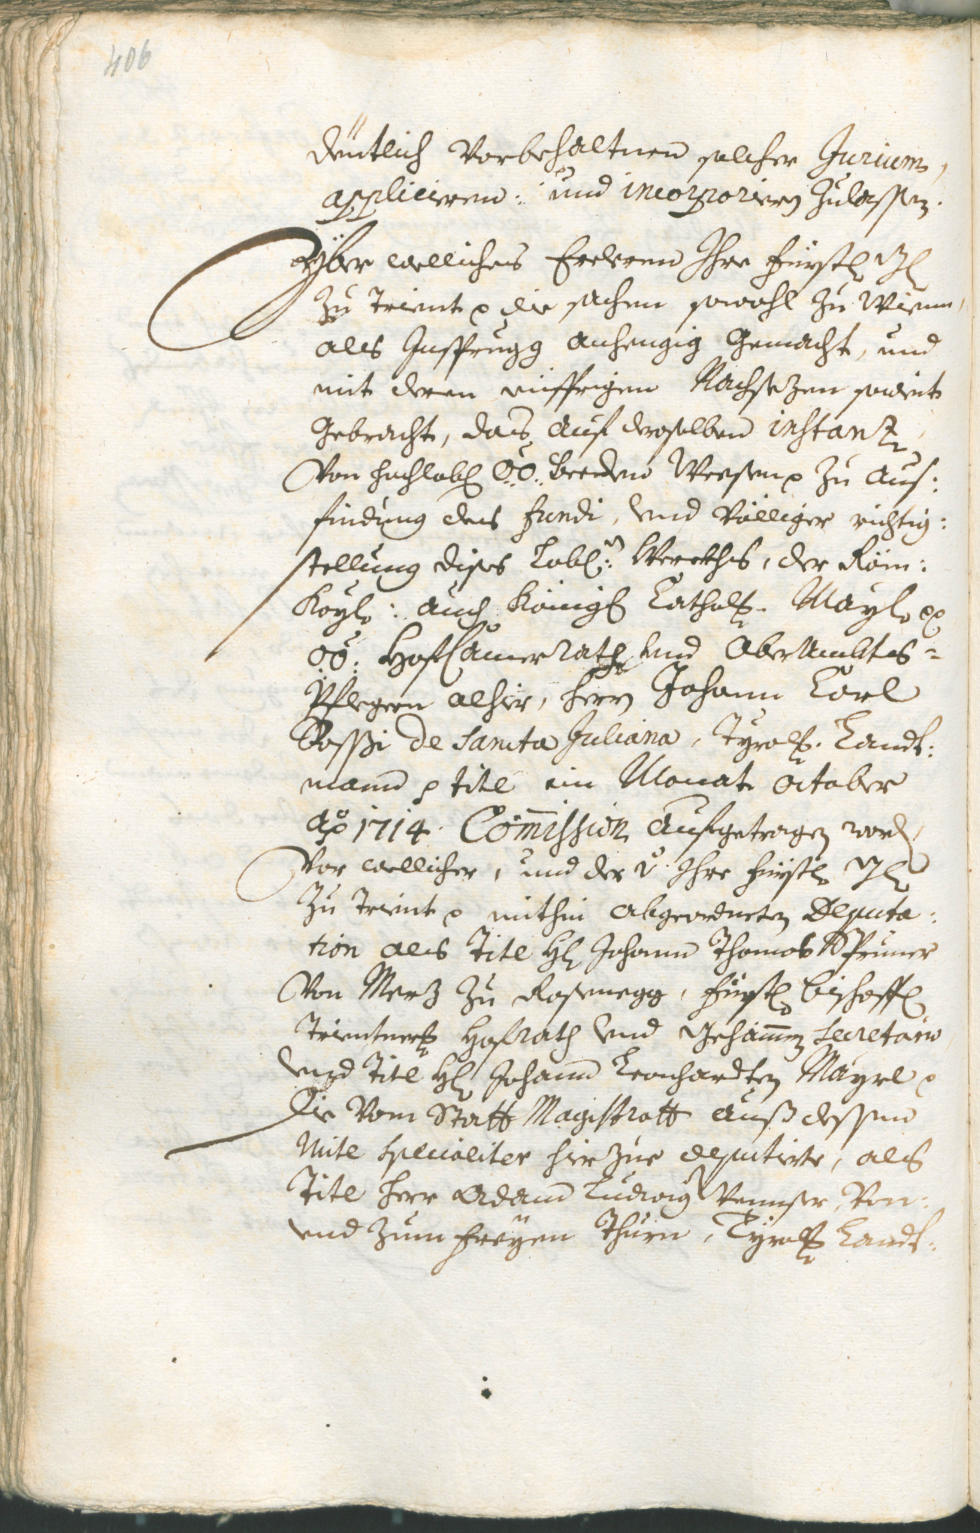 406
deutlich vorbehaltnen solcher Jurium,
appliciren: und incorporiern zulassen.
Yber welliches Ersteren Ihro fürstl: Gl:
zu Trient p die sachen sowohl zu Wienn,
als Insprugg anhengig gemacht, und
mit deren eiffrigen Nachsezen soweit
gebracht, das auf deroselben instanz,
von hochlobl: OÖ: beeden Weesen p zu aus:
findung des fundi, und völliger richtig:
stellung dises Lobl: Werckhs, der Röm:
Kayl: auch Königl: Cathol: Mayl: pp
OÖ: Hof Camer Rath und OberAmbts=
Pflegern alhier, herrn Johann Carl
Rossi de Sancta Juliana, Tyrol: Landt:
mann p titl ein Monat October
Ao 1714. Commission aufgetragen word,
vor wellicher, und der v: Ihro fürstl: Gl:
zu Trient p mithin abgeordneten Deputa:
tion als Titl H: Johann Thomas Prunner
von Merz zu Rosenegg, fürstl: bischoffl:
Trientner: Hofrath und gehaimen Secretario
und Titl H: Johann Leonhardten Mayrl p
die vom Statt Magistratt auß dessen
Mitl specialiter hierzue deputirte, als
Titl herr Adam Ludwig Venuser, von:
und zum freyen Thurn, Tyrol: Landt: